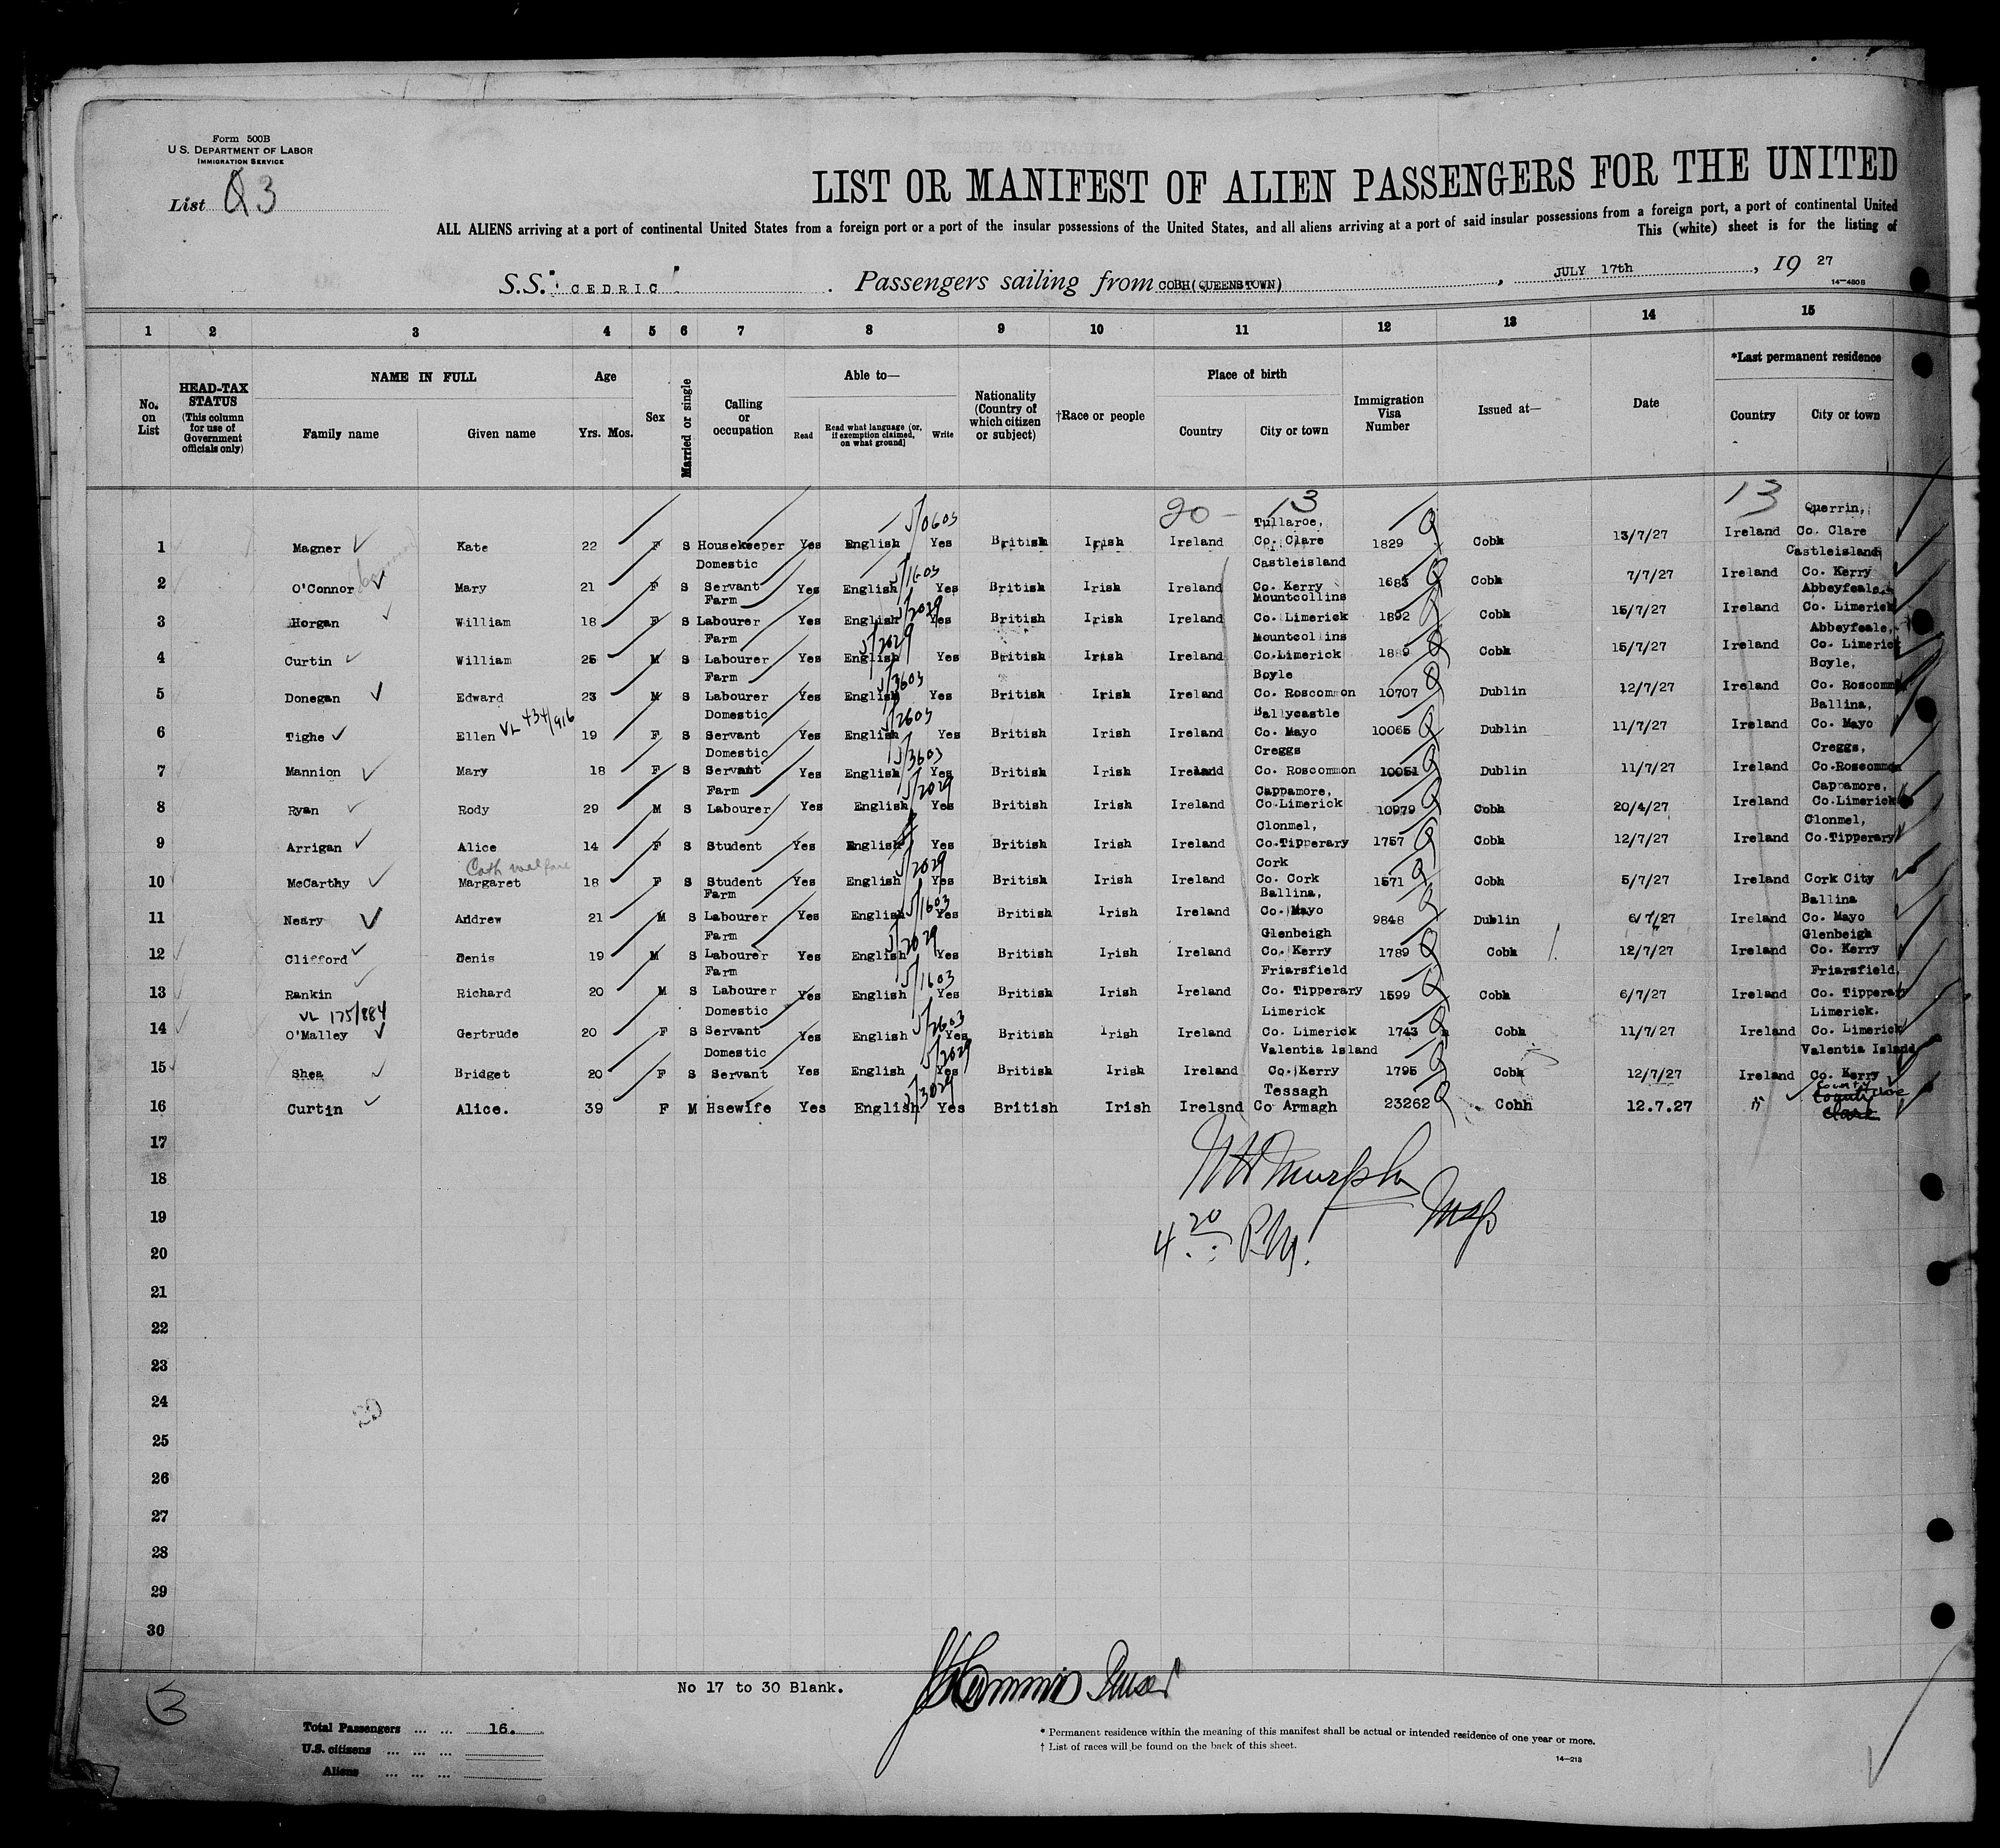 Form 500B
U.S. DEPARTMENT OF LABOR
IMMIGRATION SERVICE
List Q3
LIST OR MANIFEST OF ALIEN PASSENGERS FOR THE UNITED
ALL ALIENS arriving at a port of continental United States from a foreign port or a port of the insular possessions of the United States, and all aliens arriving at a port of said insular possessions from a foreign port, a port of continental United
This (white) sheet is for the listing of
S.S. "CEDRIC". Passengers sailing from COBH(QUEENSTOWN), JULY 17th, 19 27
14—480B
1 2 3 4 5 6 7 8 9 10 11 12 13 14 15
No. on List
HEAD-TAX STATUS (This column for use of Government officials only)
NAME IN FULL
Family name Given name
Age
Yrs. Mos.
Sex
Married or single
Calling or occupation
Able to—
Read
Read what language (or, if exemption claimed, on what ground)
Write
Nationality (Country of which citizen or subject)
†Race or people
Place of birth
Country City or town
Immigration Visa Number
Issued at—
Date
*Last permanent residence
Country City or town
20 - 13 13
1 Magner Kate 22 F S Housekeeper Yes English 5/0603 Yes British Irish Ireland Tullaroe, Co. Clare 1829 Cobh 13/7/27 Ireland Querrin, Co. Clare
2 O'Connor Mary 21 F S Domestic Servant Yes English 5/1603 Yes British Irish Ireland Castleisland Co. Kerry 1683 Cobh 7/7/27 Ireland Castleisland Co. Kerry
3 Horgan William 18 F S Farm Labourer Yes English 5/2029 Yes British Irish Ireland Mountcollins Co. Limerick 1892 Cobh 15/7/27 Ireland Abbeyfeale, Co. Limerick
4 Curtin William 25 M S Farm Labourer Yes English 5/2029 Yes British Irish Ireland Mountcollins Co.Limerick 1889 Cobh 15/7/27 Ireland Abbeyfeale, Co. Limerick
5 Donegan Edward 23 M S Farm Labourer Yes English 5/3603 Yes British Irish Ireland Boyle Co. Roscommon 10707 Dublin 12/7/27 Ireland Boyle, Co. Roscommon
6 Tighe Ellen VL 434/916 19 F S Domestic Servant Yes English 5/2603 Yes British Irish Ireland Ballycastle Co. Mayo 10065 Dublin 11/7/27 Ireland Ballina, Co. Mayo
7 Mannion Mary 18 F S Domestic Servant Yes English 5/3603 Yes British Irish Ireland Creggs Co. Roscommon 10051 Dublin 11/7/27 Ireland Creggs, Co.Roscommon
8 Ryan Rody 29 M S Farm Labourer Yes English 5/2029 Yes British Irish Ireland Cappamore, Co.Limerick 10979 Cobh 20/4/27 Ireland Cappamore, Co.Limerick
9 Arrigan Alice 14 F S Student Yes English British Irish Ireland Clonmel, Co.Tipperary 1757 Cobh 12/7/27 Ireland Clonmel, Co.Tipperary
Cath welfare
10 McCarthy Margaret 18 F S Student Yes English 5/2029 Yes British Irish Ireland Cork Co. Cork 1571 Cobh 5/7/27 Ireland Cork City
11 Neary Andrew 21 M S Farm Labourer Yes English 5/1603 Yes British Irish Ireland Ballina, Co. Mayo 9848 Dublin 6/7/27 Ireland Ballina Co. Mayo
12 Clifford Denis 19 M S Farm Labourer Yes English 5/2029 Yes British Irish Ireland Glenbeigh Co. Kerry 1789 Cobh 12/7/27 Ireland Glenbeigh Co. Kerry
13 Rankin Richard 20 M S Farm Labourer Yes English 5/1603 Yes British Irish Ireland Friarsfield Co. Tipperary 1599 Cobh 6/7/27 Ireland Friarsfield, Co. Tipperary
VL 175/884
14 O'Malley Gertrude 20 F S Domestic Servant Yes English 5/2603 Yes British Irish Ireland Limerick Co. Limerick 1743 Cobh 11/7/27 Ireland Limerick. Co. Limerick
15 Shea Bridget 20 F S Domestic Servant Yes English 5/2029 Yes British Irish Ireland Valentia Island Co. Kerry 1795 Cobh 12/7/27 Ireland Valentia Island Co. Kerry
16 Curtin Alice. 39 F M Hsewife Yes English 5/3029 Yes British Irish Ireland Tessagh Co Armagh 23262 Cobh 12.7.27 " County Clare
17
18
19
20
21
22
23
24
25
26
27
28
29
30
4 20 P.M.
20
No 17 to 30 Blank.
Purser
3
Total Passengers ... ... 16.
U.S. citizens ... ... ...
Aliens ... ... ...
* Permanent residence within the meaning of this manifest shall be actual or intended residence of one year or more.
† List of races will be found on the back of this sheet.
14—218